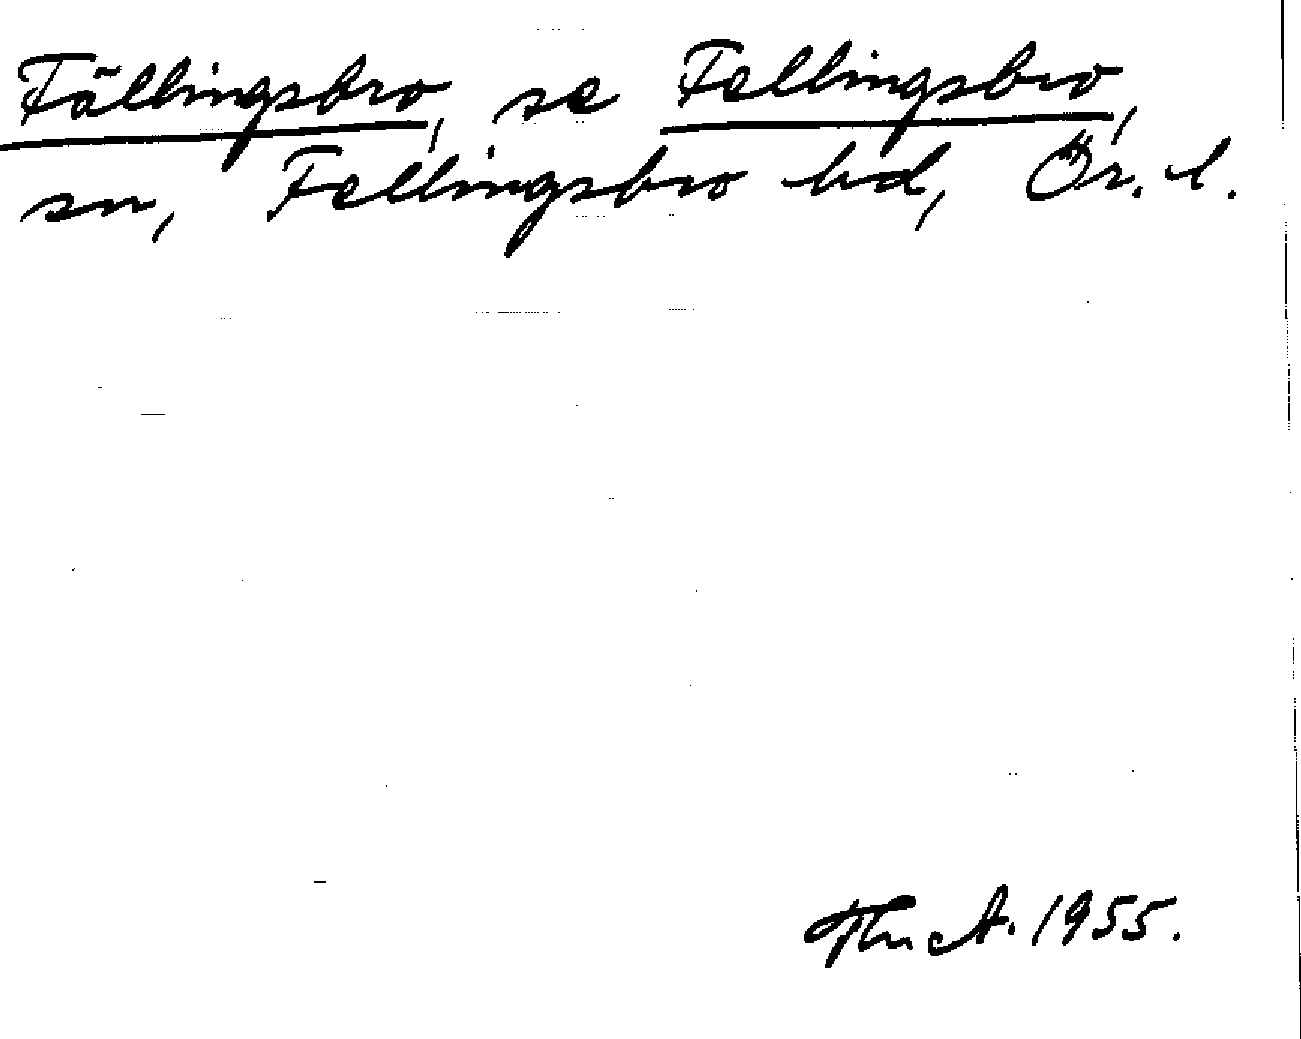 Fällingsbro, se Fellingsbro,
sn, Fellingsbro hd, Ör. l.
A. 1955.